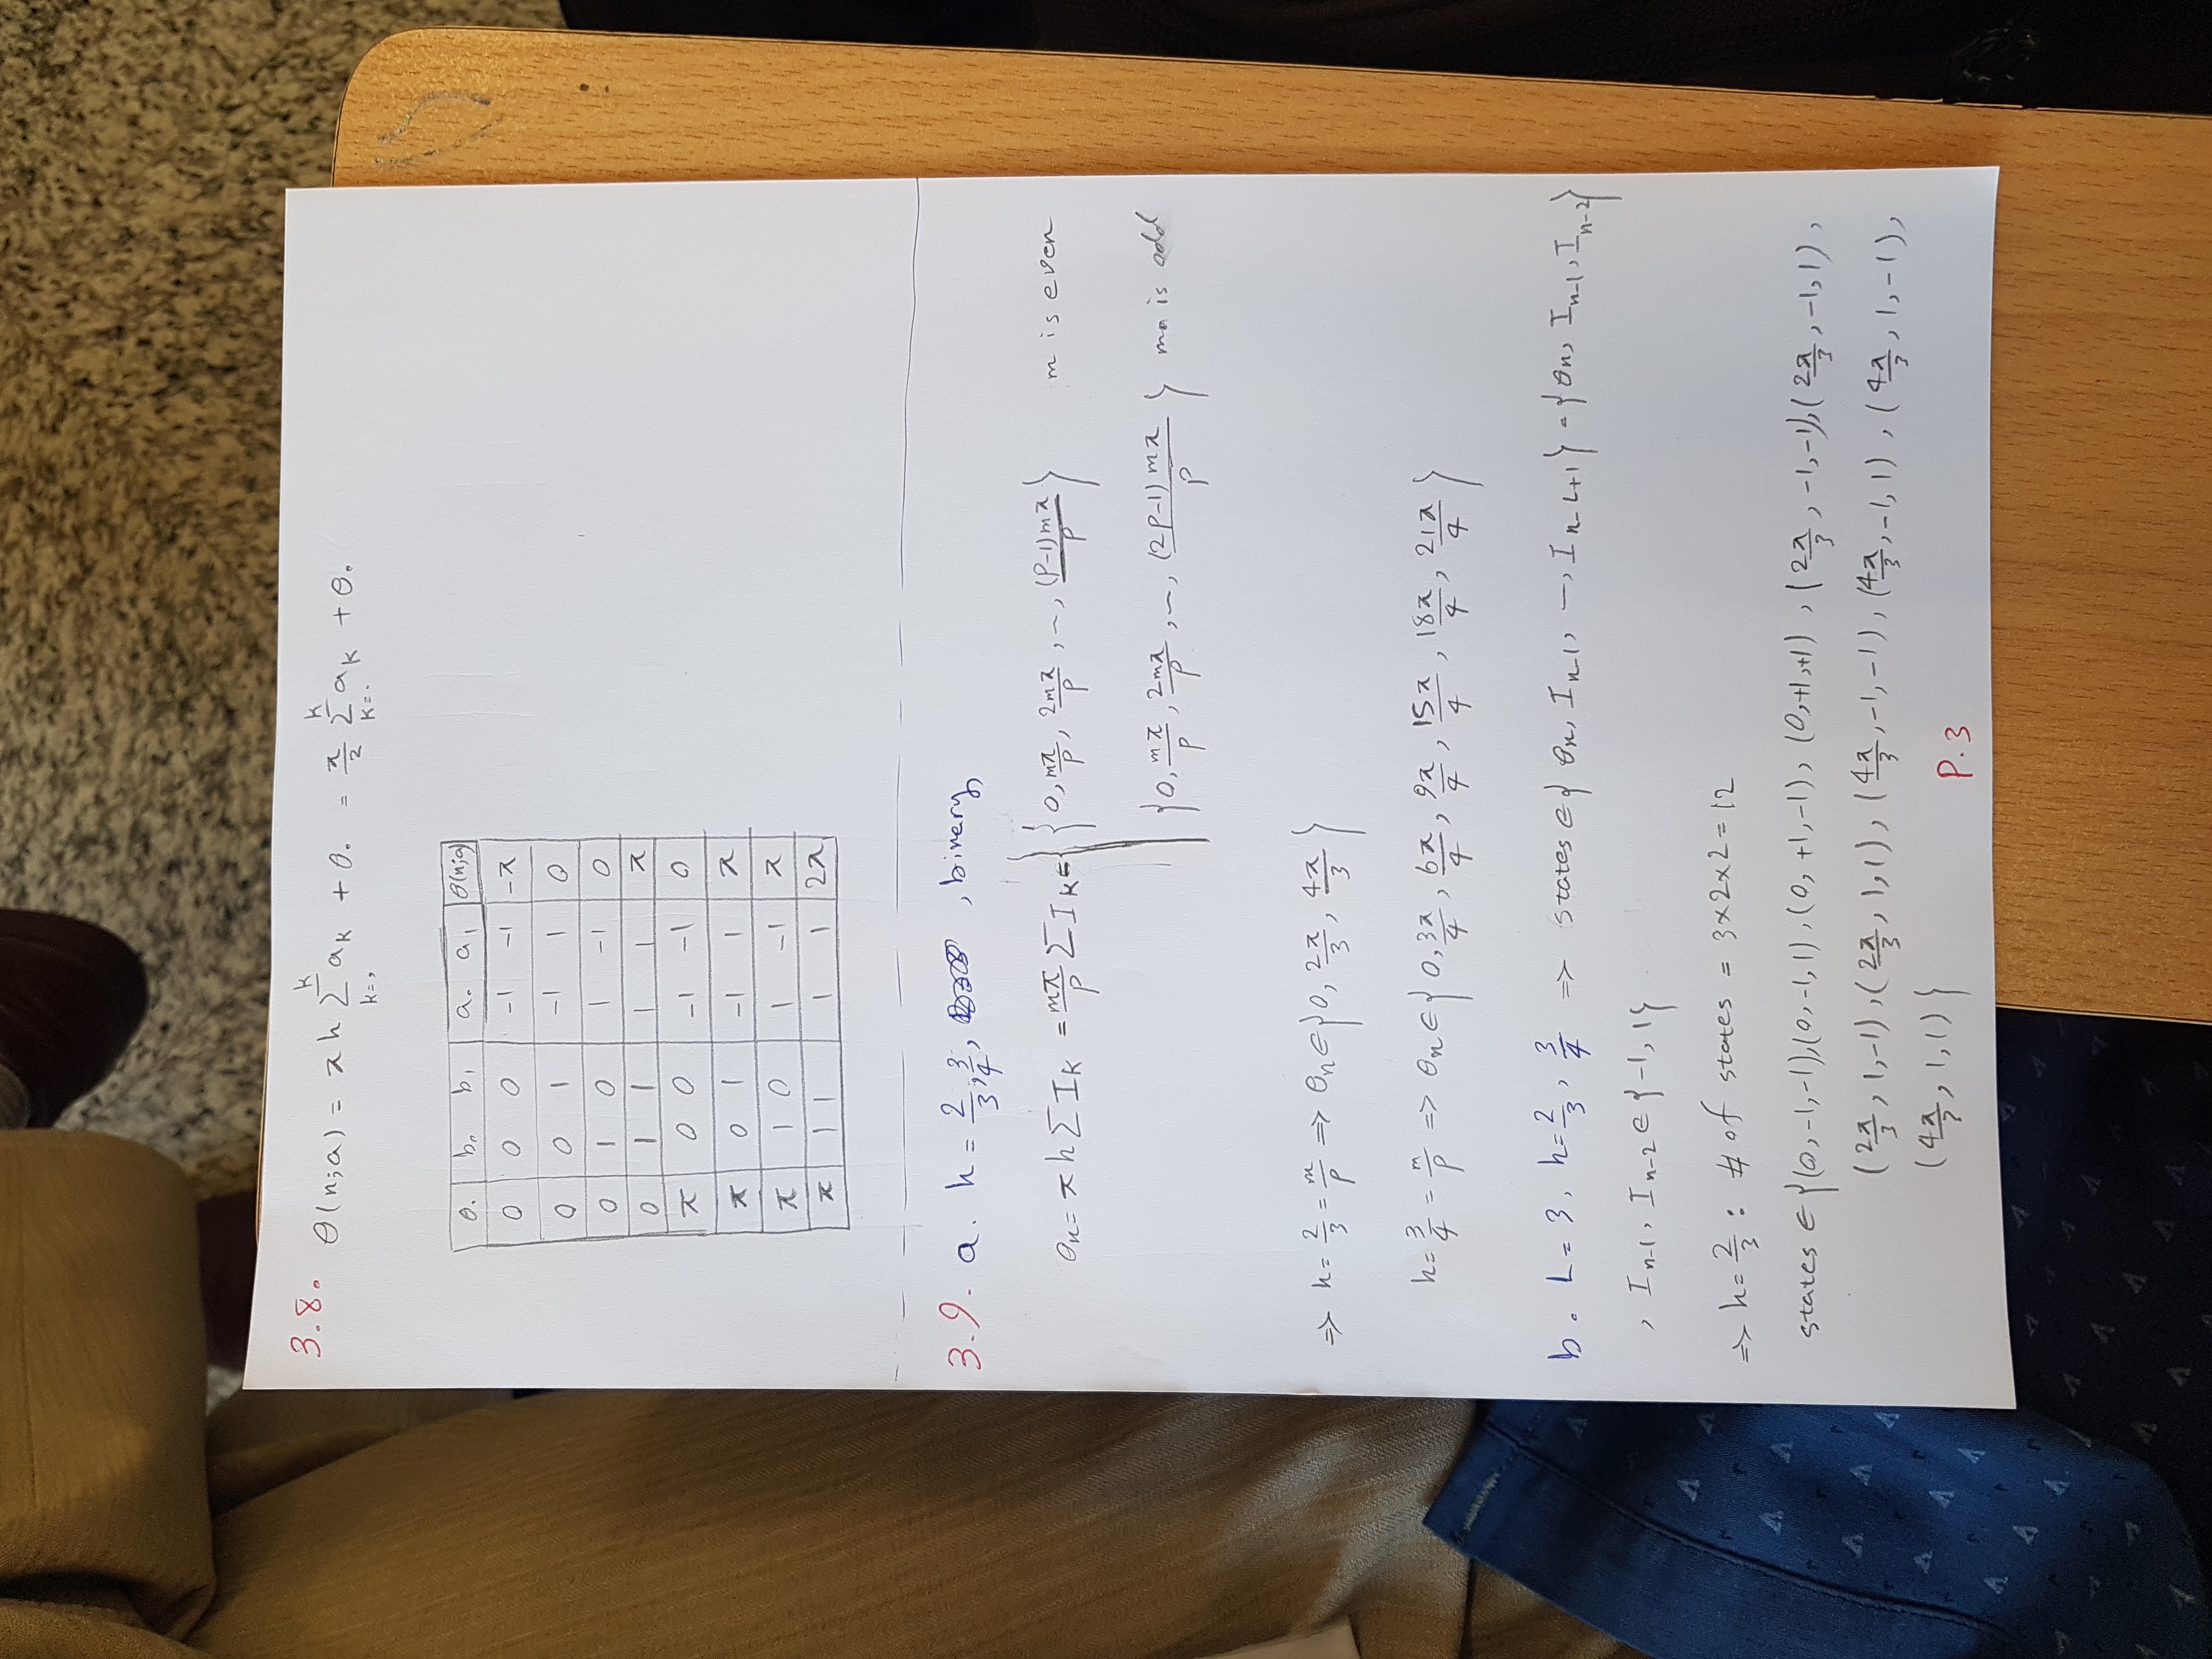 3.8. θ(n;a) = π h ∑_{k=0}^{k} a_k + θ₀ = π/2 ∑_{k=0}^{k} a_k + θ₀
θ₀ b₀ b₁ a₀ a₁ θ(n;a)
0 0 0 -1 -1 -π
0 0 1 -1 1 0
0 1 0 1 -1 0
0 1 1 1 1 π
π 0 0 -1 -1 0
π 0 1 -1 1 π
π 1 0 1 -1 π
π 1 1 1 1 2π
3.9. a. h = 2/3, 3/4, , binary
θn = π h ∑ I_k = mπ/p ∑ I_k = { {0, mπ/p, 2mπ/p, ..., (p-1)mπ/p} m is even
{0, mπ/p, 2mπ/p, ..., (2p-1)mπ/p} m is odd
⇒ h = 2/3 = m/p ⇒ θn ∈ {0, 2π/3, 4π/3}
h = 3/4 = m/p ⇒ θn ∈ {0, 3π/4, 6π/4, 9π/4, 15π/4, 18π/4, 21π/4}
b. L = 3, h = 2/3, 3/4 ⇒ states ∈ {θn, I_{n-1}, ..., I_{n-L+1}} = {θn, I_{n-1}, I_{n-2}}
, I_{n-1}, I_{n-2} ∈ {-1, 1}
⇒ h = 2/3 : # of states = 3×2×2 = 12
states ∈ {(0,-1,-1),(0,-1,1),(0,+1,-1),(0,+1,+1),(2π/3,-1,-1),(2π/3,-1,1),
(2π/3,1,-1),(2π/3,1,1),(4π/3,-1,-1),(4π/3,-1,1),(4π/3,1,-1),
(4π/3,1,1)}
P.3